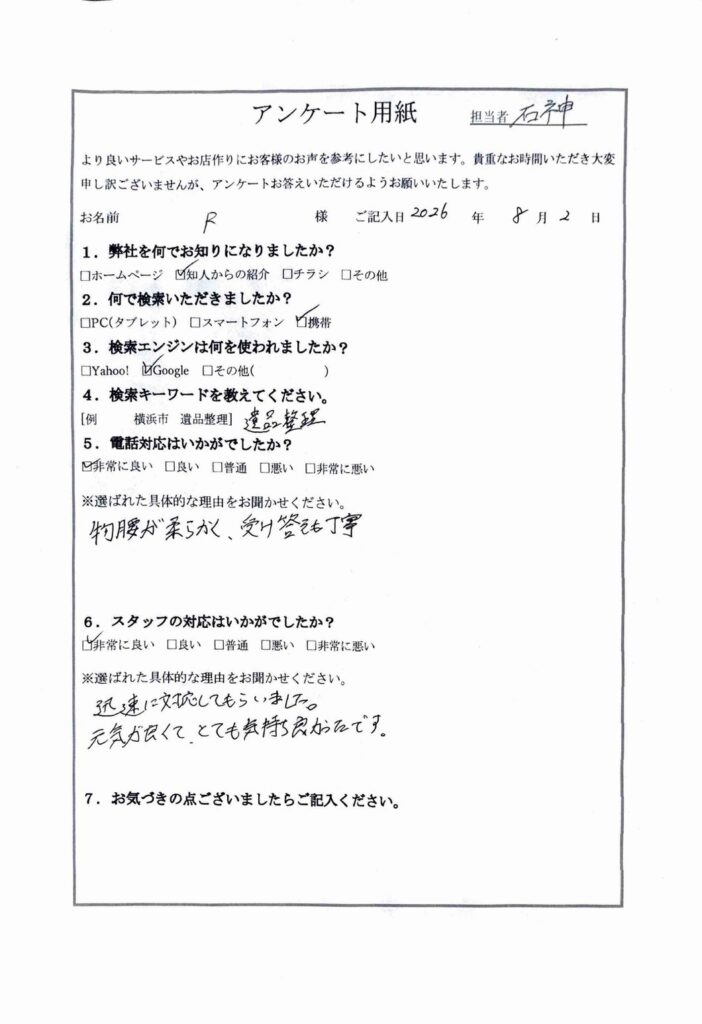 アンケート用紙 担当者 石神
より良いサービスやお店作りにお客様のお声を参考にしたいと思います。貴重なお時間いただき大変
申し訳ございませんが、アンケートお答えいただけるようお願いいたします。
お名前 R 様 ご記入日 2026 年 8 月 2 日
1．弊社を何でお知りになりましたか？
□ホームページ ☑知人からの紹介 □チラシ □その他
2．何で検索いただきましたか？
□PC(タブレット) □スマートフォン ☑携帯
3．検索エンジンは何を使われましたか？
□Yahoo! ☑Google □その他( )
4．検索キーワードを教えてください。
[例 横浜市 遺品整理] 遺品整理
5．電話対応はいかがでしたか？
☑非常に良い □良い □普通 □悪い □非常に悪い
※選ばれた具体的な理由をお聞かせください。
物腰が柔らかく、受け答えも丁寧
6．スタッフの対応はいかがでしたか？
☑非常に良い □良い □普通 □悪い □非常に悪い
※選ばれた具体的な理由をお聞かせください。
迅速に対応してもらいました。
元気が良くて、とても気持ち良かったです。
7．お気づきの点ございましたらご記入ください。